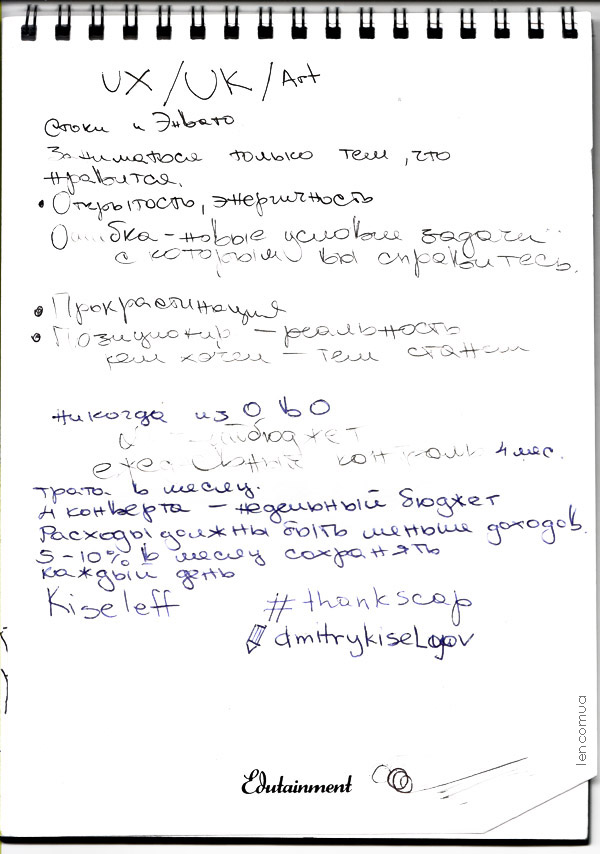 UX/UK/Art
Стоки и Энвато
Заниматься только тем, что
нравится.
• Открытость, энергичность
Ошибка - новые условие задачи
с которыми вы справитесь.
• Прокрастинация
• Позициониp - реальность
кем хотем - тем станем
никогда из 0 в 0
бюджет
контроль 4 мес.
трата в месяц.
4 конверта - недельный бюджет
Расходы должны быть меньше доходов.
5-10% в месяц сохранять
каждый день
Kiseleff
#thankscap
dmitrykiselov
Edutainment
len.com.ua